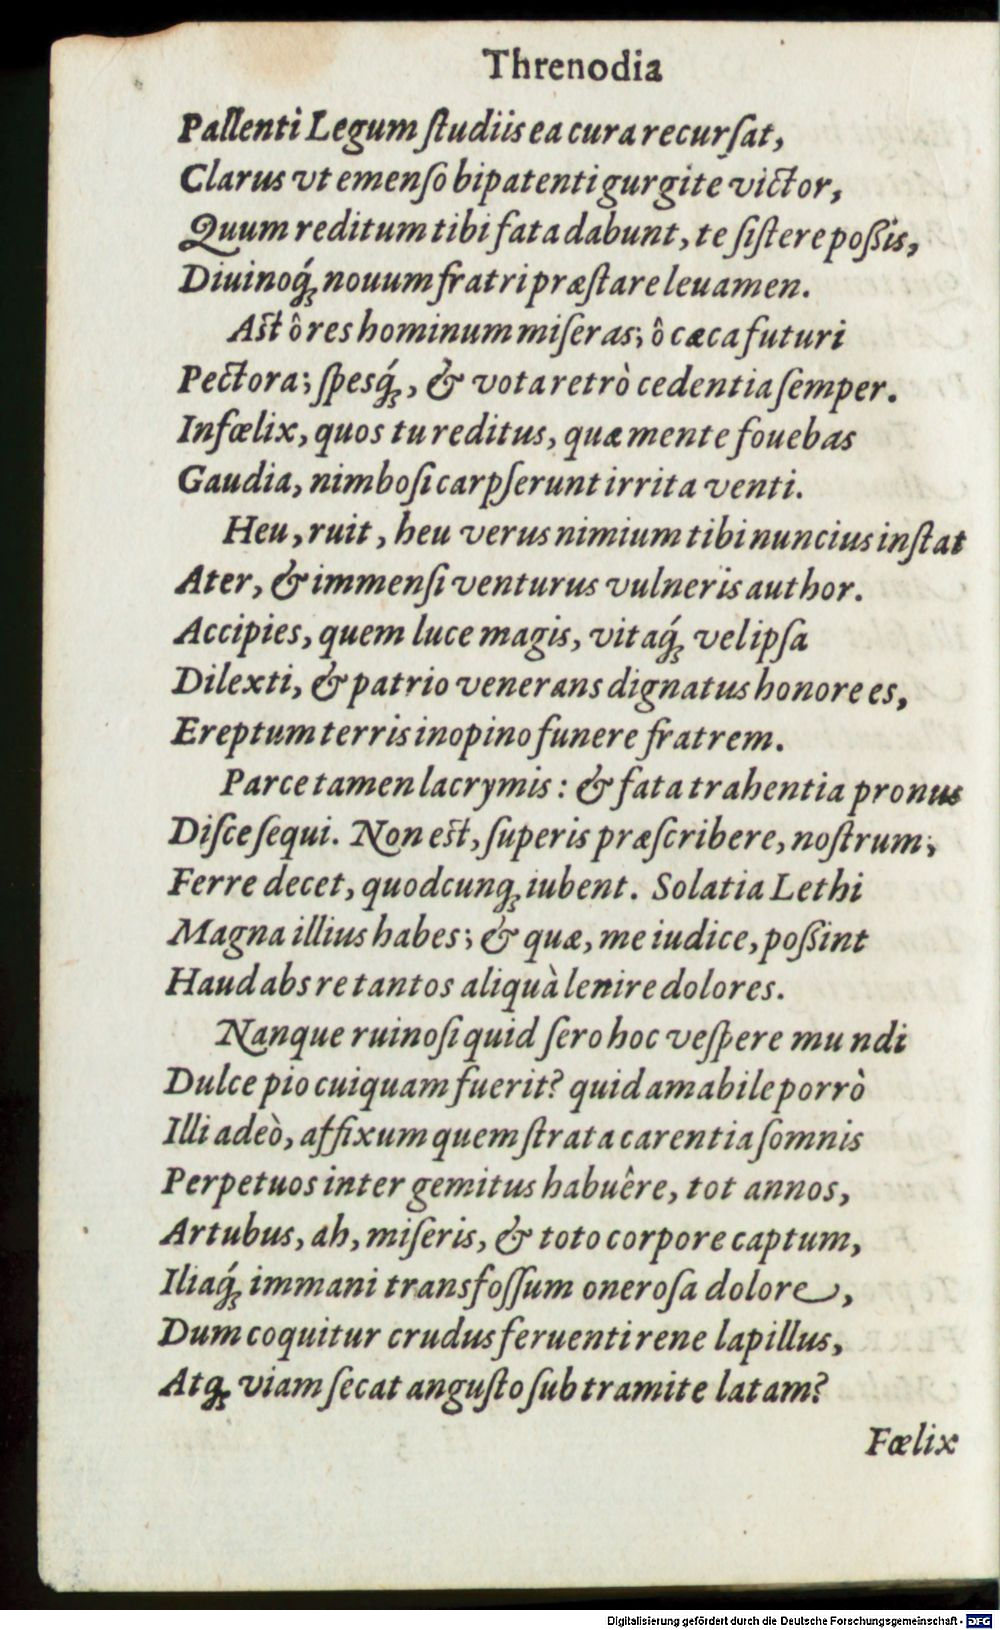 Threnodia
Pallenti Legum ſtudiis ea cura recurſat,
Clarus vt emenſo bipatenti gurgite victor,
Quum reditum tibi fata dabunt, te ſiſtere poſsis,
Diuinoq́ꝫ nouum fratri præſtare leuamen.
Aſt ô res hominum miſeras; ô cæca futuri
Pectora; ſpesq́ꝫ, & vota retrò cedentia ſemper.
Infœlix, quos tu reditus, quæ mente fouebas
Gaudia, nimboſi carpſerunt irrita venti.
Heu, ruit, heu verus nimium tibi nuncius inſtat
Ater, & immenſi venturus vulneris author.
Accipies, quem luce magis, vitaq́ꝫ vel ipſa
Dilexti, & patrio venerans dignatus honore es,
Ereptum terris inopino funere fratrem.
Parce tamen lacrymis: & fata trahentia pronus
Diſce ſequi. Non eſt, ſuperis præſcribere, noſtrum;
Ferre decet, quodcunqꝫ iubent. Solatia Lethi
Magna illius habes; & quæ, me iudice, poſsint
Haud abs re tantos aliquà lenire dolores.
Nanque ruinoſi quid ſero hoc veſpere mundi
Dulce pio cuiquam fuerit? quid amabile porrò
Illi adeò, affixum quem ſtrata carentia ſomnis
Perpetuos inter gemitus habuêre, tot annos,
Artubus, ah, miſeris, & toto corpore captum,
Iliaq́ꝫ immani transfoſſum oneroſa dolore,
Dum coquitur crudus feruenti rene lapillus,
Atqꝫ viam ſecat anguſto ſub tramite latam?
Fœlix
Digitalisierung gefördert durch die Deutsche Forschungsgemeinschaft - DFG